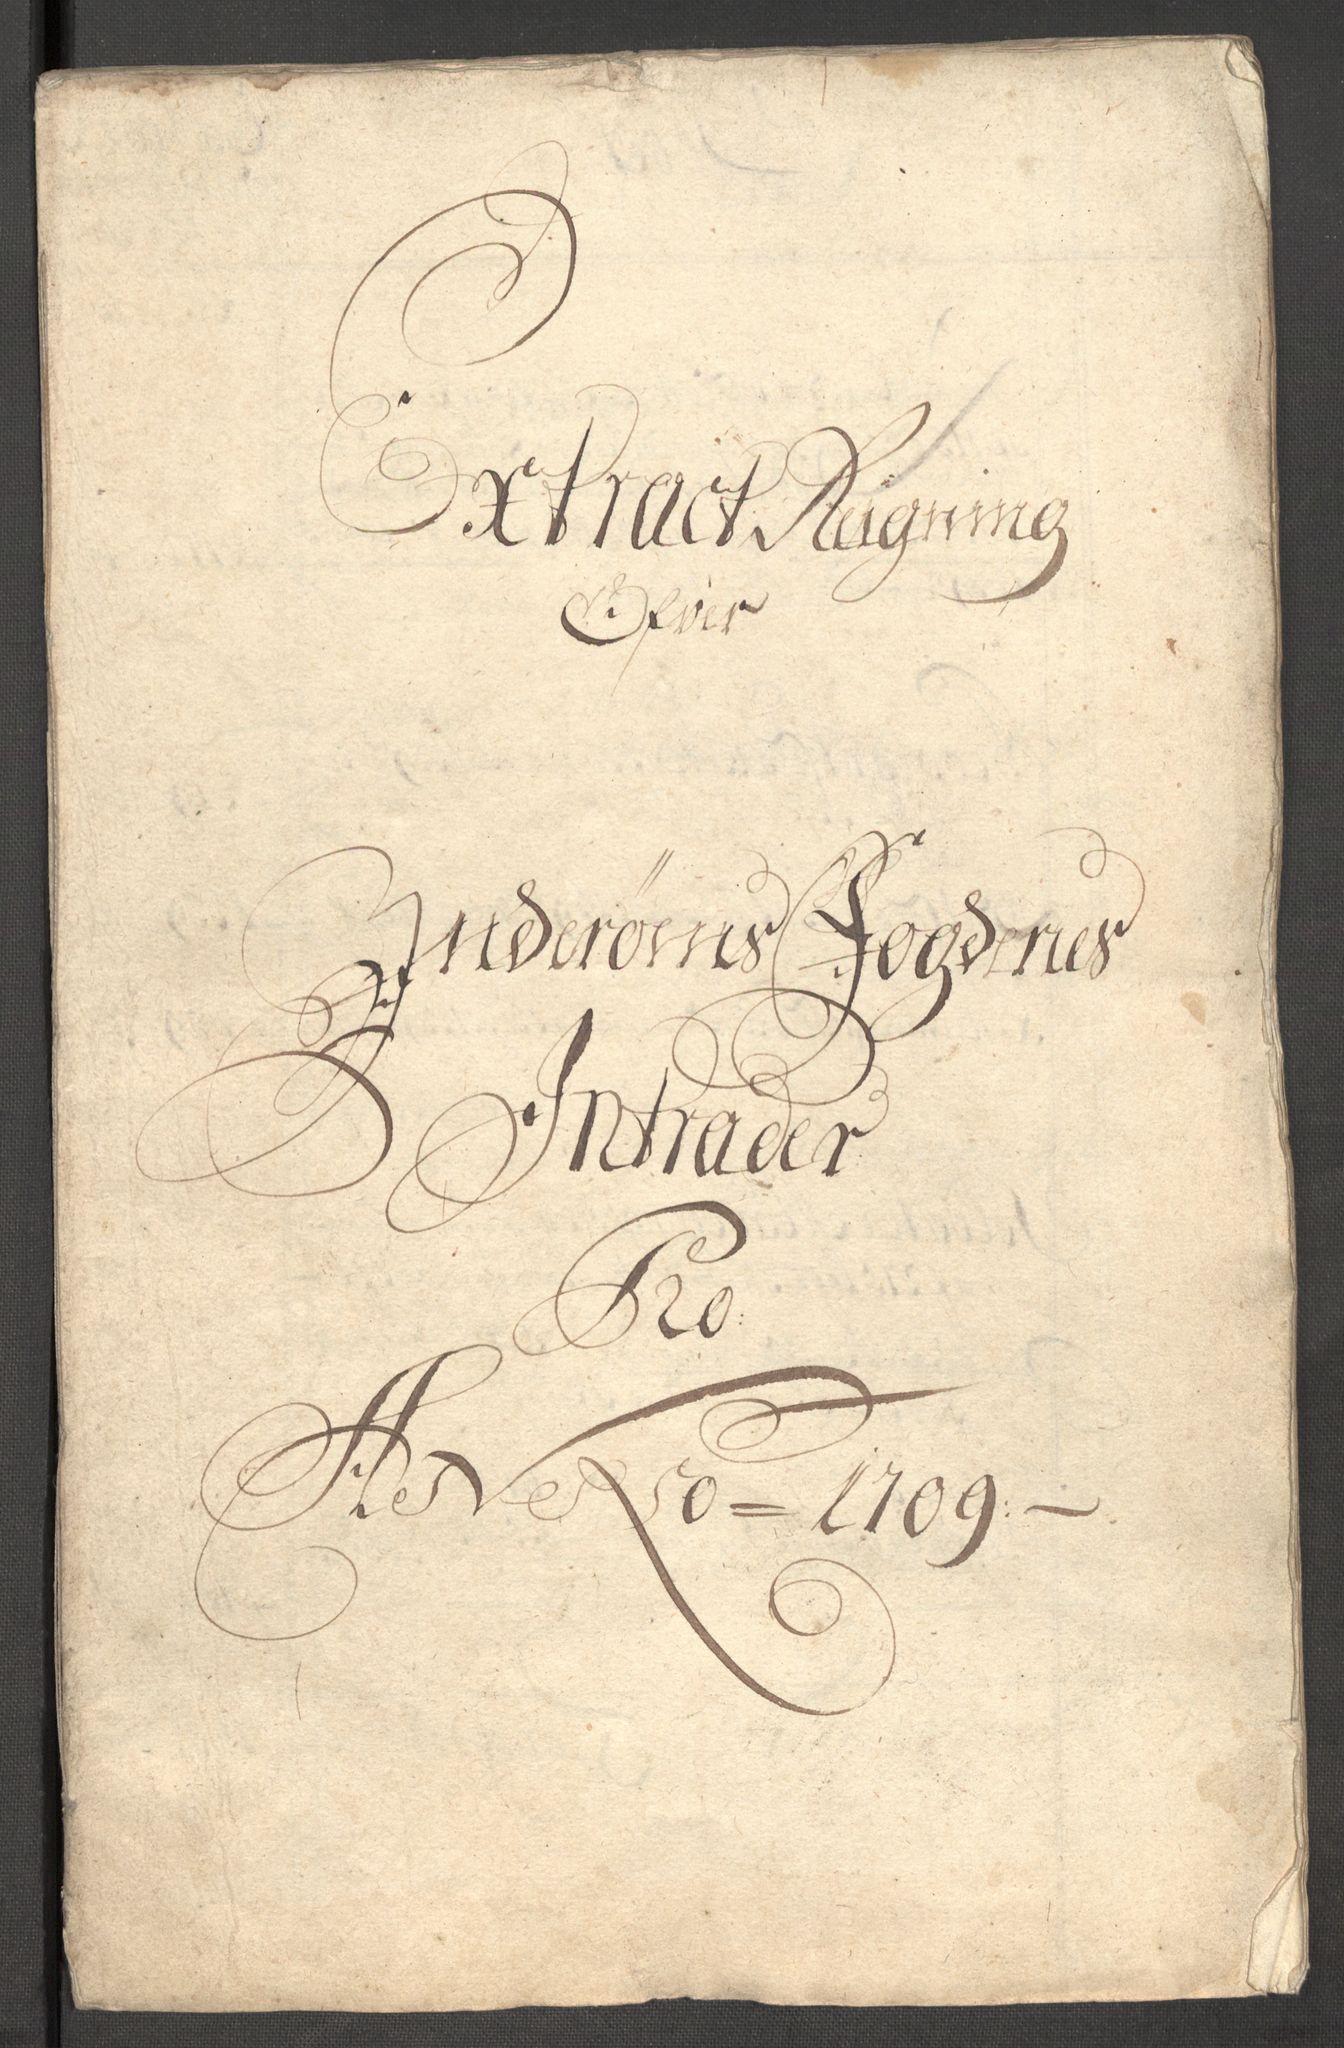 Extract Reigning
Ofver
Inderöens Fogderies
Intrader
Pro
Anno = 1709. —